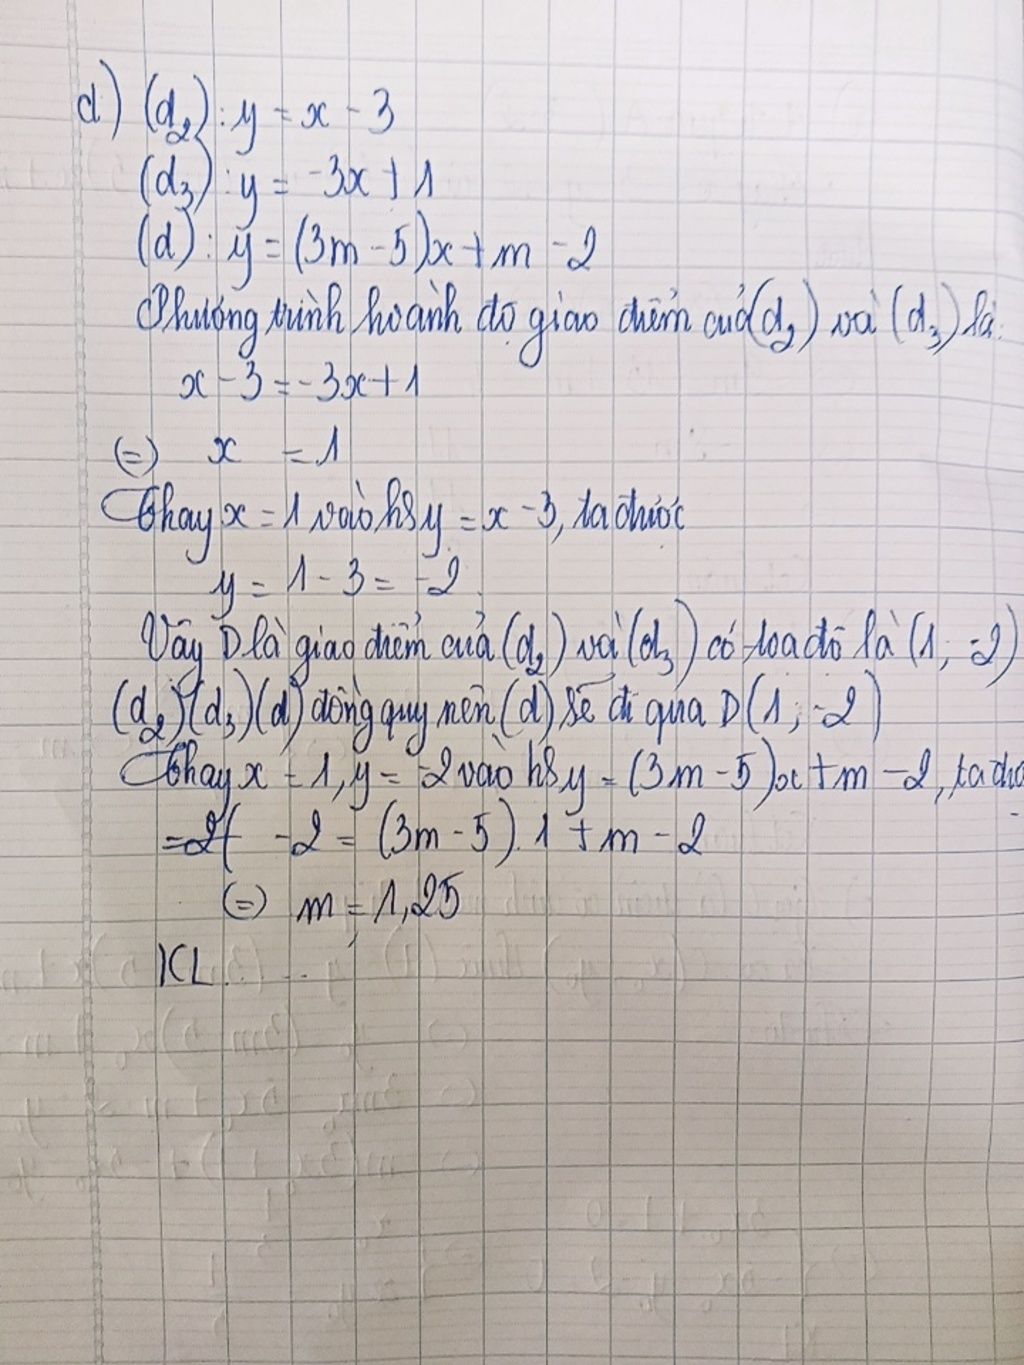 d) (d₂): y = x - 3
(d₃): y = -3x + 1
(d): y = (3m - 5)x + m - 2
Phương trình hoành độ giao điểm của (d₂) và (d₃) là:
x - 3 = -3x + 1
(=) x = 1
Thay x = 1 vào hs y = x - 3, ta được
y = 1 - 3 = -2
Vậy D là giao điểm của (d₂) và (d₃) có toạ độ là (1; -2)
(d₂)(d₃)(d) đồng quy nên (d) sẽ đi qua D(1; -2)
Thay x = 1, y = -2 vào hs y = (3m - 5)x + m - 2, ta đư
-2 = (3m - 5).1 + m - 2
(=) m = 1,25
KL: ...